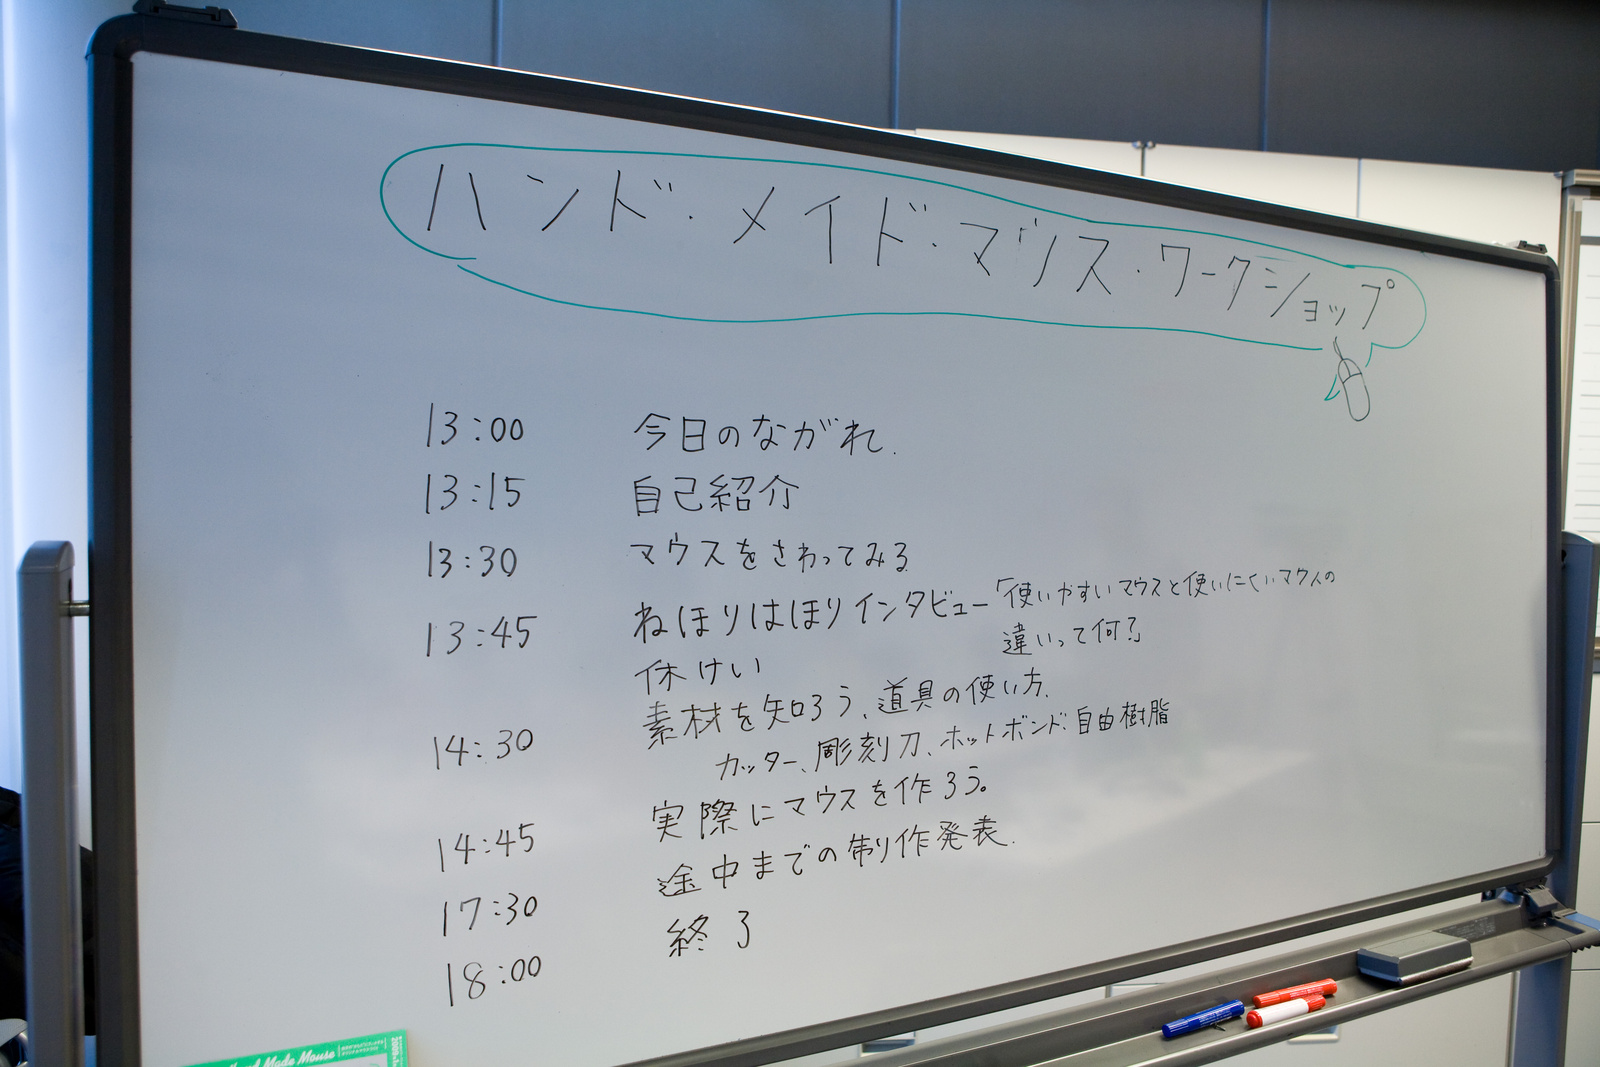 ハンド・メイド・マウス・ワークショップ
13:00 今日のながれ.
13:15 自己紹介
13:30 マウスをさわってみる
13:45 ねほりはほりインタビュー「使いやすいマウスと使いにくいマウスの
違いって何?」
休けい
14:30 素材を知ろう、道具の使い方.
カッター、彫刻刀、ホットボンド、自由樹脂
14:45 実際にマウスを作ろう。
17:30 途中までの制作発表.
18:00 終了
Hand Made Mouse